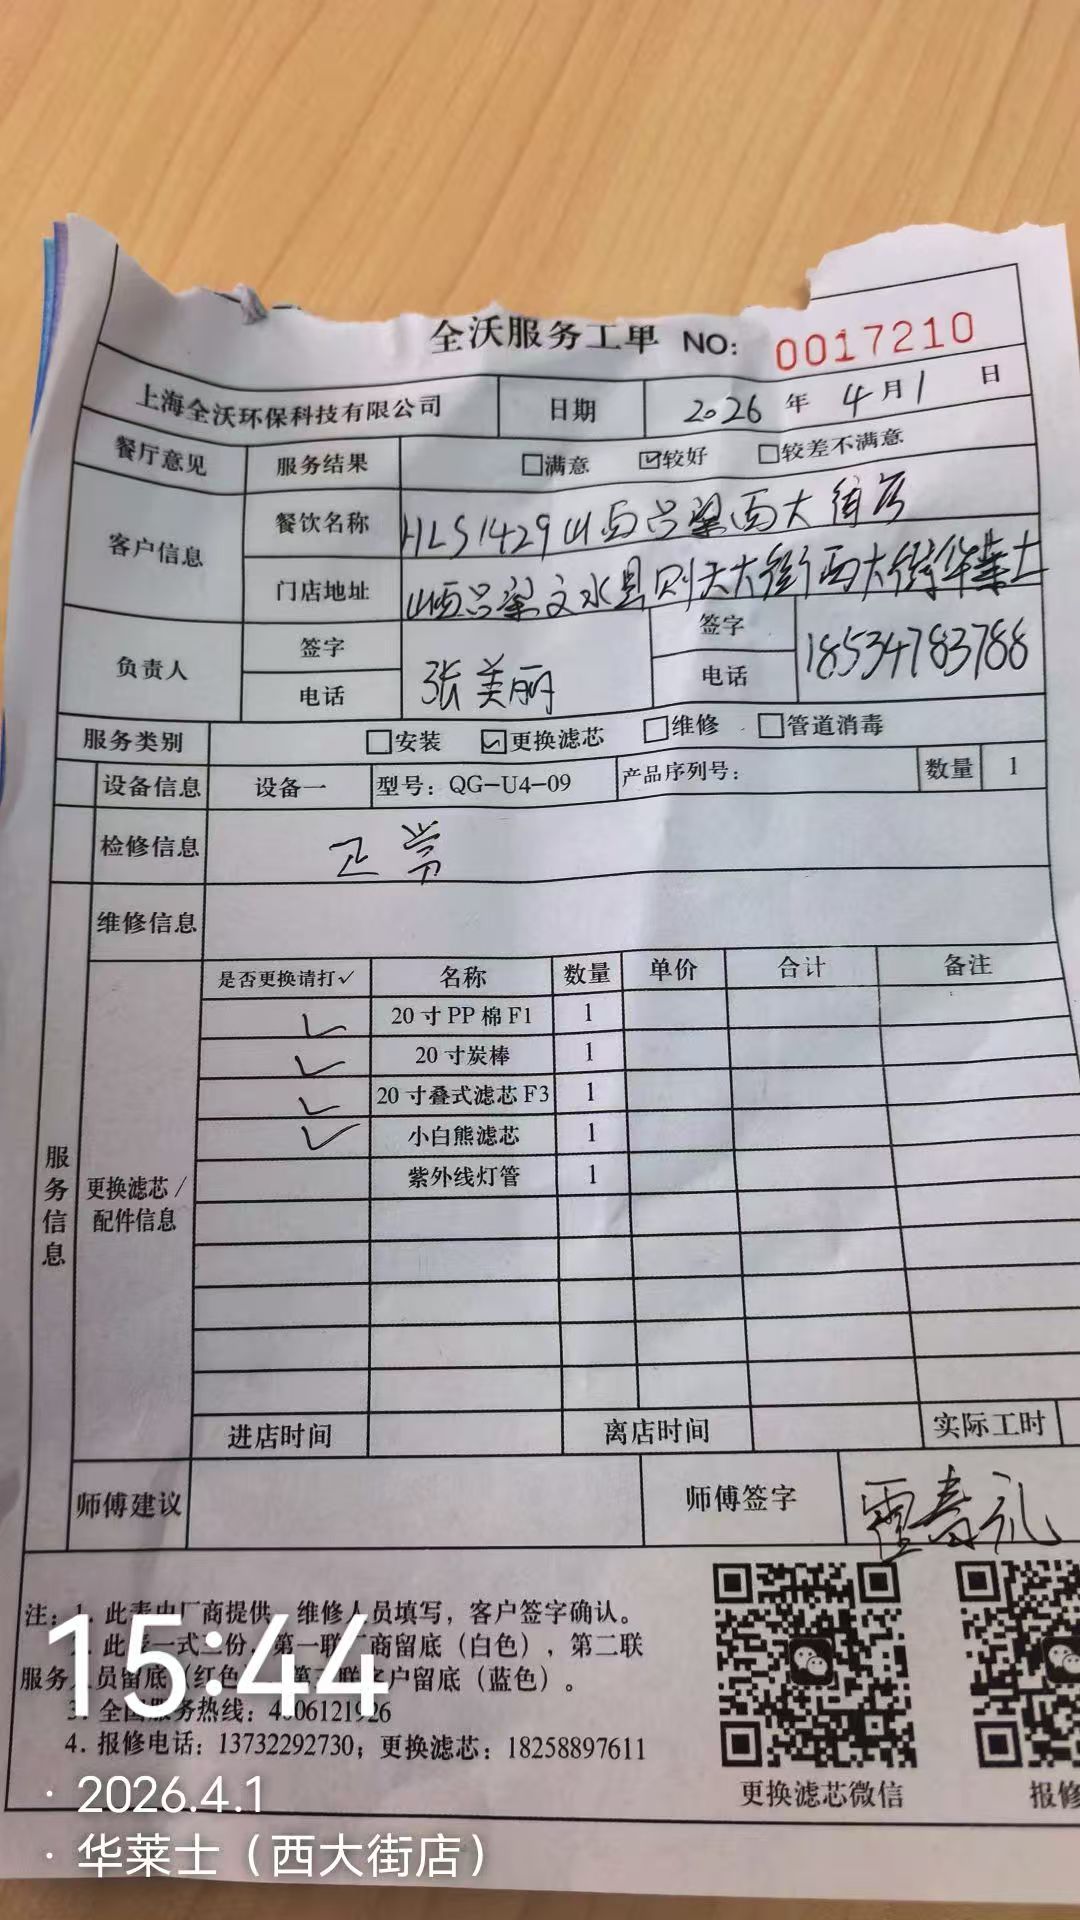 全沃服务工单 NO: 0017210
上海全沃环保科技有限公司 日期 2026 年 4 月 1 日
餐厅意见 服务结果 □满意 ☑较好 □较差不满意
客户信息 餐饮名称 HLS1429山西吕梁西大街店
门店地址 山西吕梁文水县则天大街西大街华莱士
负责人 签字 张美丽 签字 18534783788
电话 电话
服务类别 □安装 ☑更换滤芯 □维修 □管道消毒
设备信息 设备一 型号：QG-U4-09 产品序列号： 数量 1
检修信息 正常
维修信息
服务信息
更换滤芯/配件信息
是否更换请打✓ 名称 数量 单价 合计 备注
✓ 20寸PP棉F1 1
✓ 20寸炭棒 1
✓ 20寸叠式滤芯F3 1
✓ 小白熊滤芯 1
紫外线灯管 1
进店时间 离店时间 实际工时
师傅建议 师傅签字
注：1. 此表由厂商提供，维修人员填写，客户签字确认。
2. 此表一式三份，第一联厂商留底（白色），第二联
服务人员留底（红色），第三联客户留底（蓝色）。
3. 全国服务热线：4006121926
4. 报修电话：13732292730；更换滤芯：18258897611
更换滤芯微信 报修
15:44
· 2026.4.1
· 华莱士（西大街店）